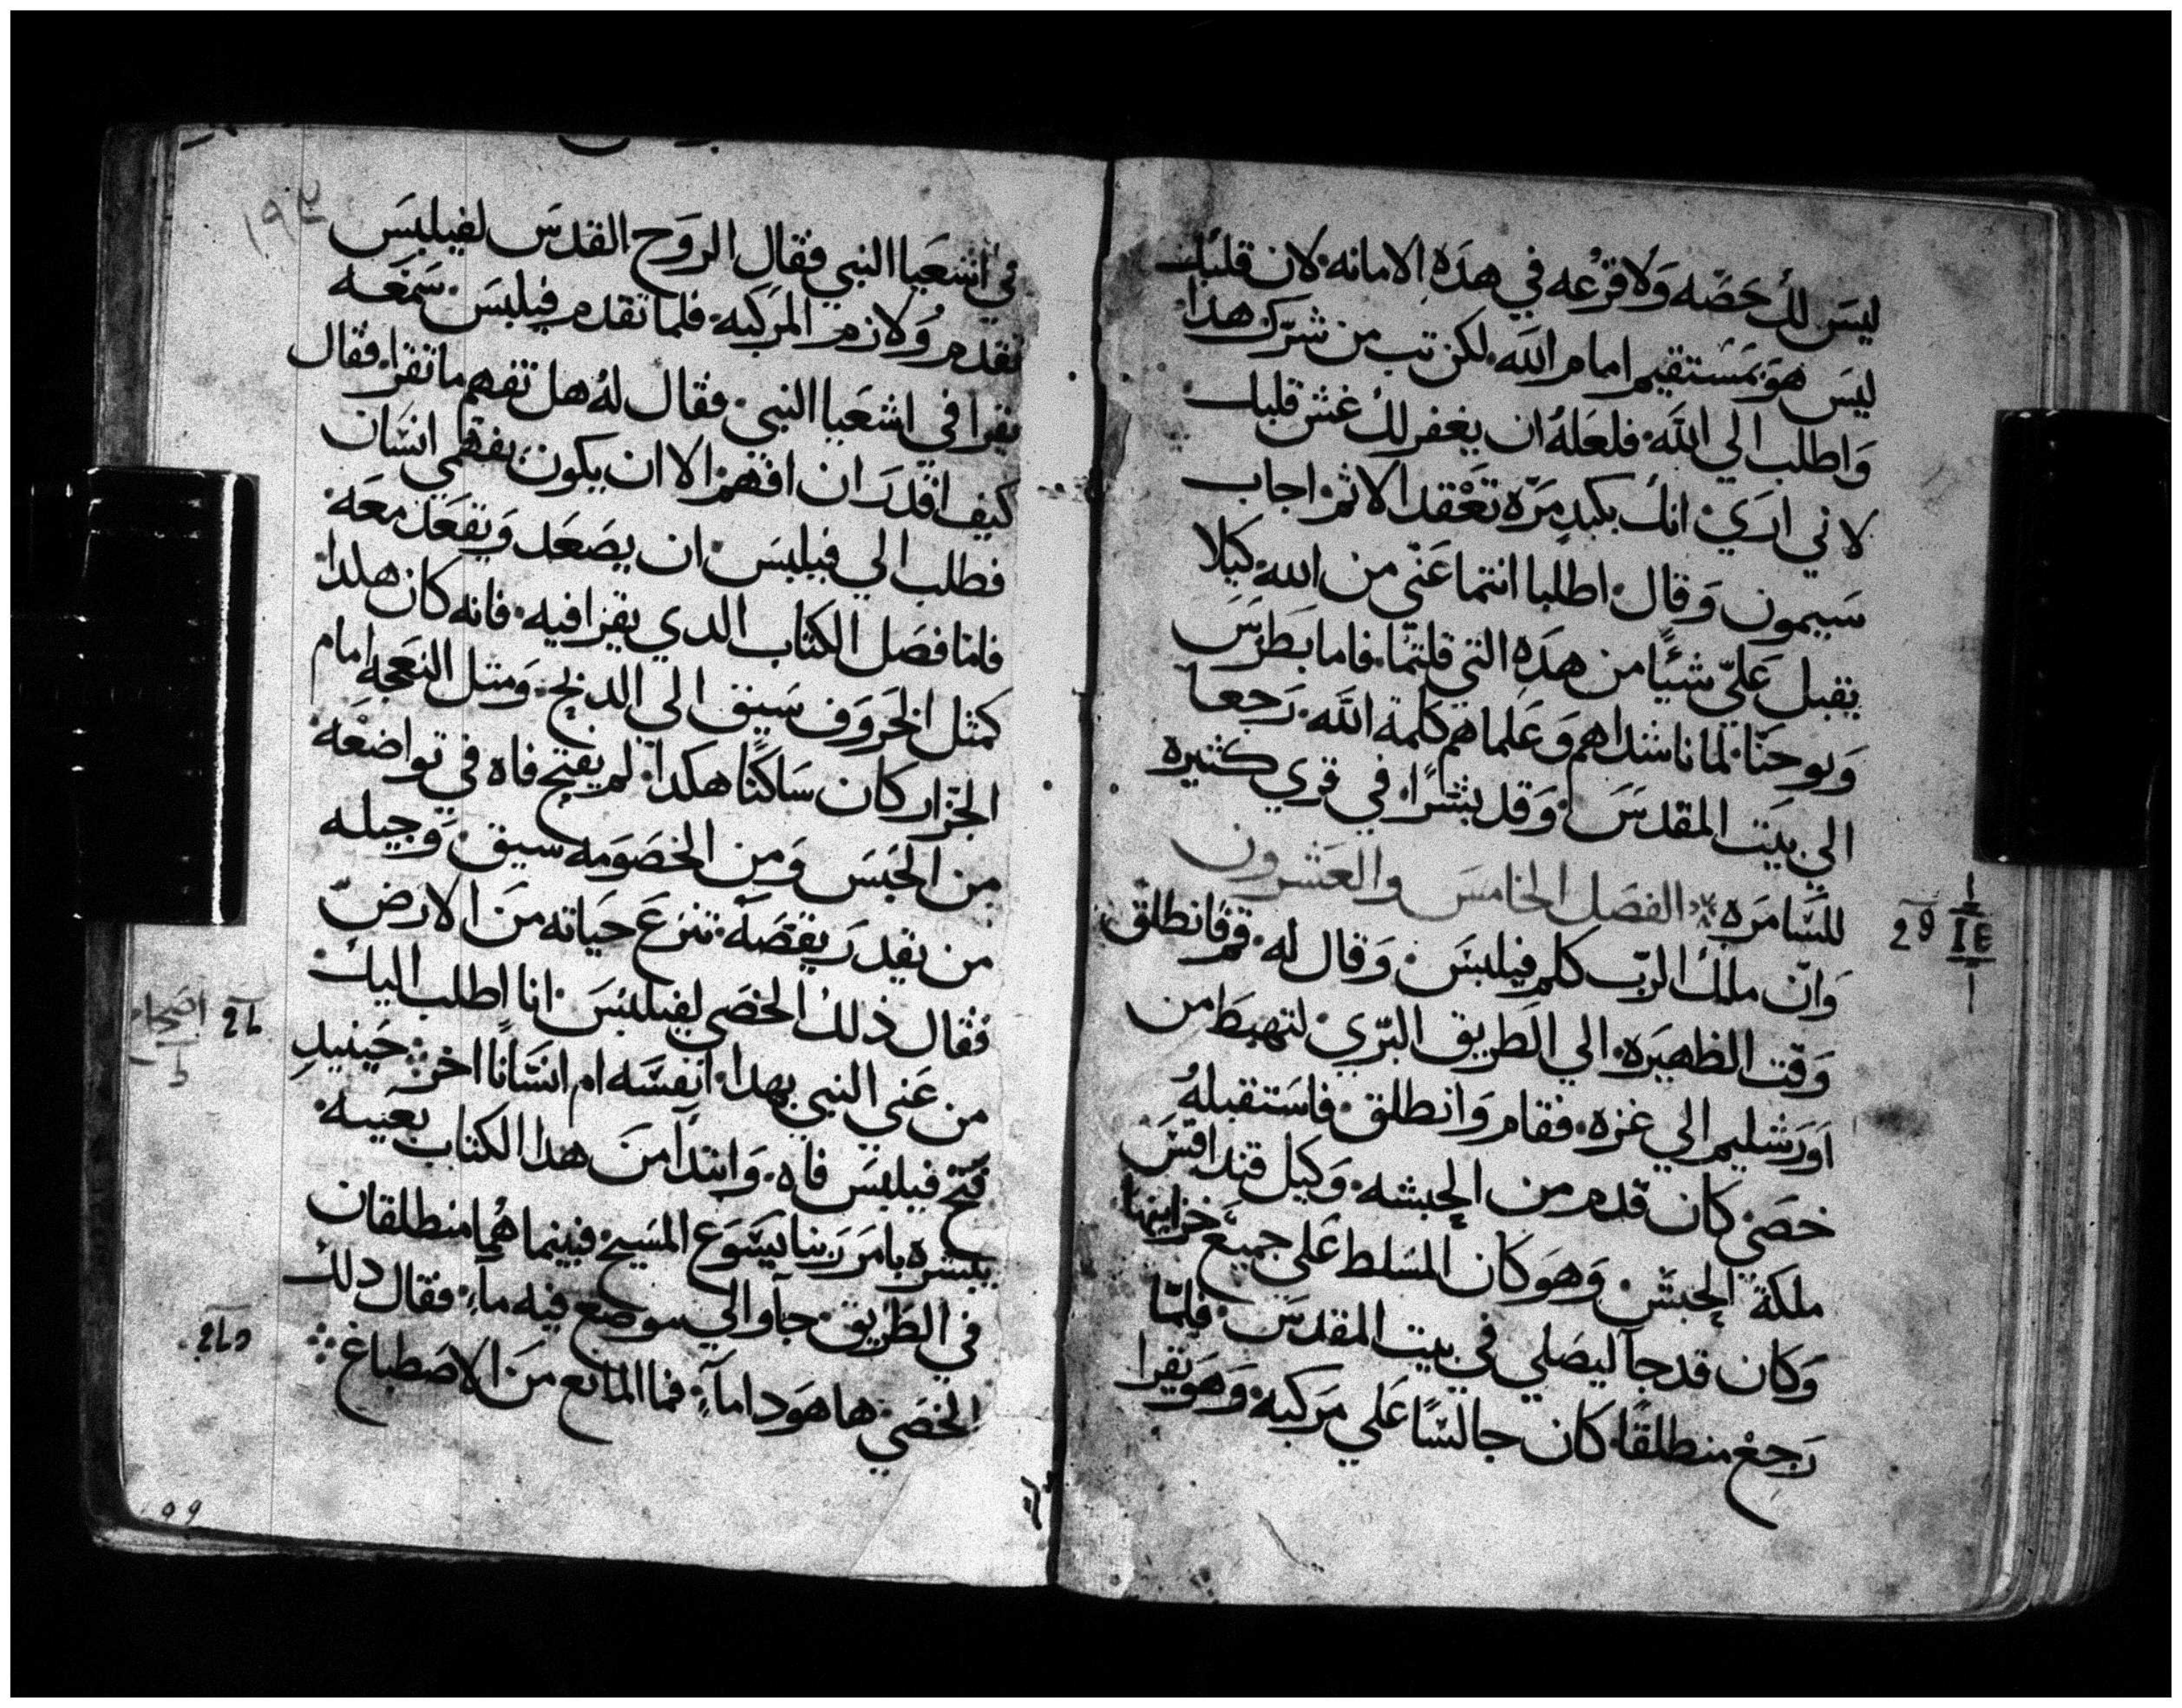 ليسَ لك حَصّه وَلا قرْعه في هدَه الامانه لان قلبك
ليسَ هوَ بمسَتقيم امام اللّه لكن تب من شرّك هدا
وَاطلب الي اللّه فلعَلهُ ان يغفر لك غش قلبك
لاني ارَي انك بكبدٍ مَرّه تعْقد الاثم اجاب
سَيمون وَقال اطلبا انتما عَني من الله كيلا
يقبل عَليّ شيًا من هدَه التي قلتما فاما بَطرسَ
وَيوحَنّا لما ناشداهم وَعَلماهم كلمة اللّه رَجعا
الي بيَت المقدسَ وَقد بشرًا في قري كثيره
للسَّامرَه الفصَل الخامسَ والعَشرون
وَانّ ملاك الربّ كلم فيلبسَ وَقال له قم فانطلق
وَقت الظهيرَه الي الطريق البرّي لتهبطَ من
اوَرَشليم الي غزه فقام وَانطلق فاسَتقبلهُ
خصَي كان قدم من الحبشه وَكيل قنداقسَ
ملكة الحبش وَهوَ كان المسَلط عَلي جميعَ خزاينها
وَكان قد جآ ليصَلي في بيت المقدسَ فلمّا
رَجع منطلقًا كان جالسًا عَلي مرَكبه وَهوَ يقرا
2و
١٩٢
في اشعَيا النبي فقال الروَح القدسَ لفيلبسَ
تقدم وَلازم المرَكبه فلما تقدم فيلبسَ سَمعَه
يقرا في اشعَيا النبي فقال لهُ هل تفهم ما تقرا فقال
كيف اقدرَ ان افهم الا ان يكون يفهمي انسَان
فطلب الي فيلبسَ ان يصَعَد وَيقعَد معَه
فاما فصَل الكتاب الدي يقرا فيه فانه كان هكدا
كمثل الخروَف سَيق الي الدبح وَمثل النعجه امام
الجزار كان سَاكتًا هكدا لم يفتح فاه في تواضعَه
من الحبسَ وَمن الخصَومه سيق وَجيله
من يقدرَ يقصَهّ تنزعَ حيَاته منَ الارَض
فقال ذلك الخصَي لفيلبسَ انا اطلب اليك
من عَني النبي بهدا انفسَه ام انسَانًا اخر حَينيدٍ
فتح فيلبسَ فاه وَابتدآ منَ هدا الكتاب بعَينه
يبشره بامرَ رَبنا يسَوع المسَيح فبينما هُما منطلقان
في الطَريق جآوا الي موضع فيه مآء فقال دلك
الخصَي ها هوَدا مآء فما المانع منَ الاصَطباغ